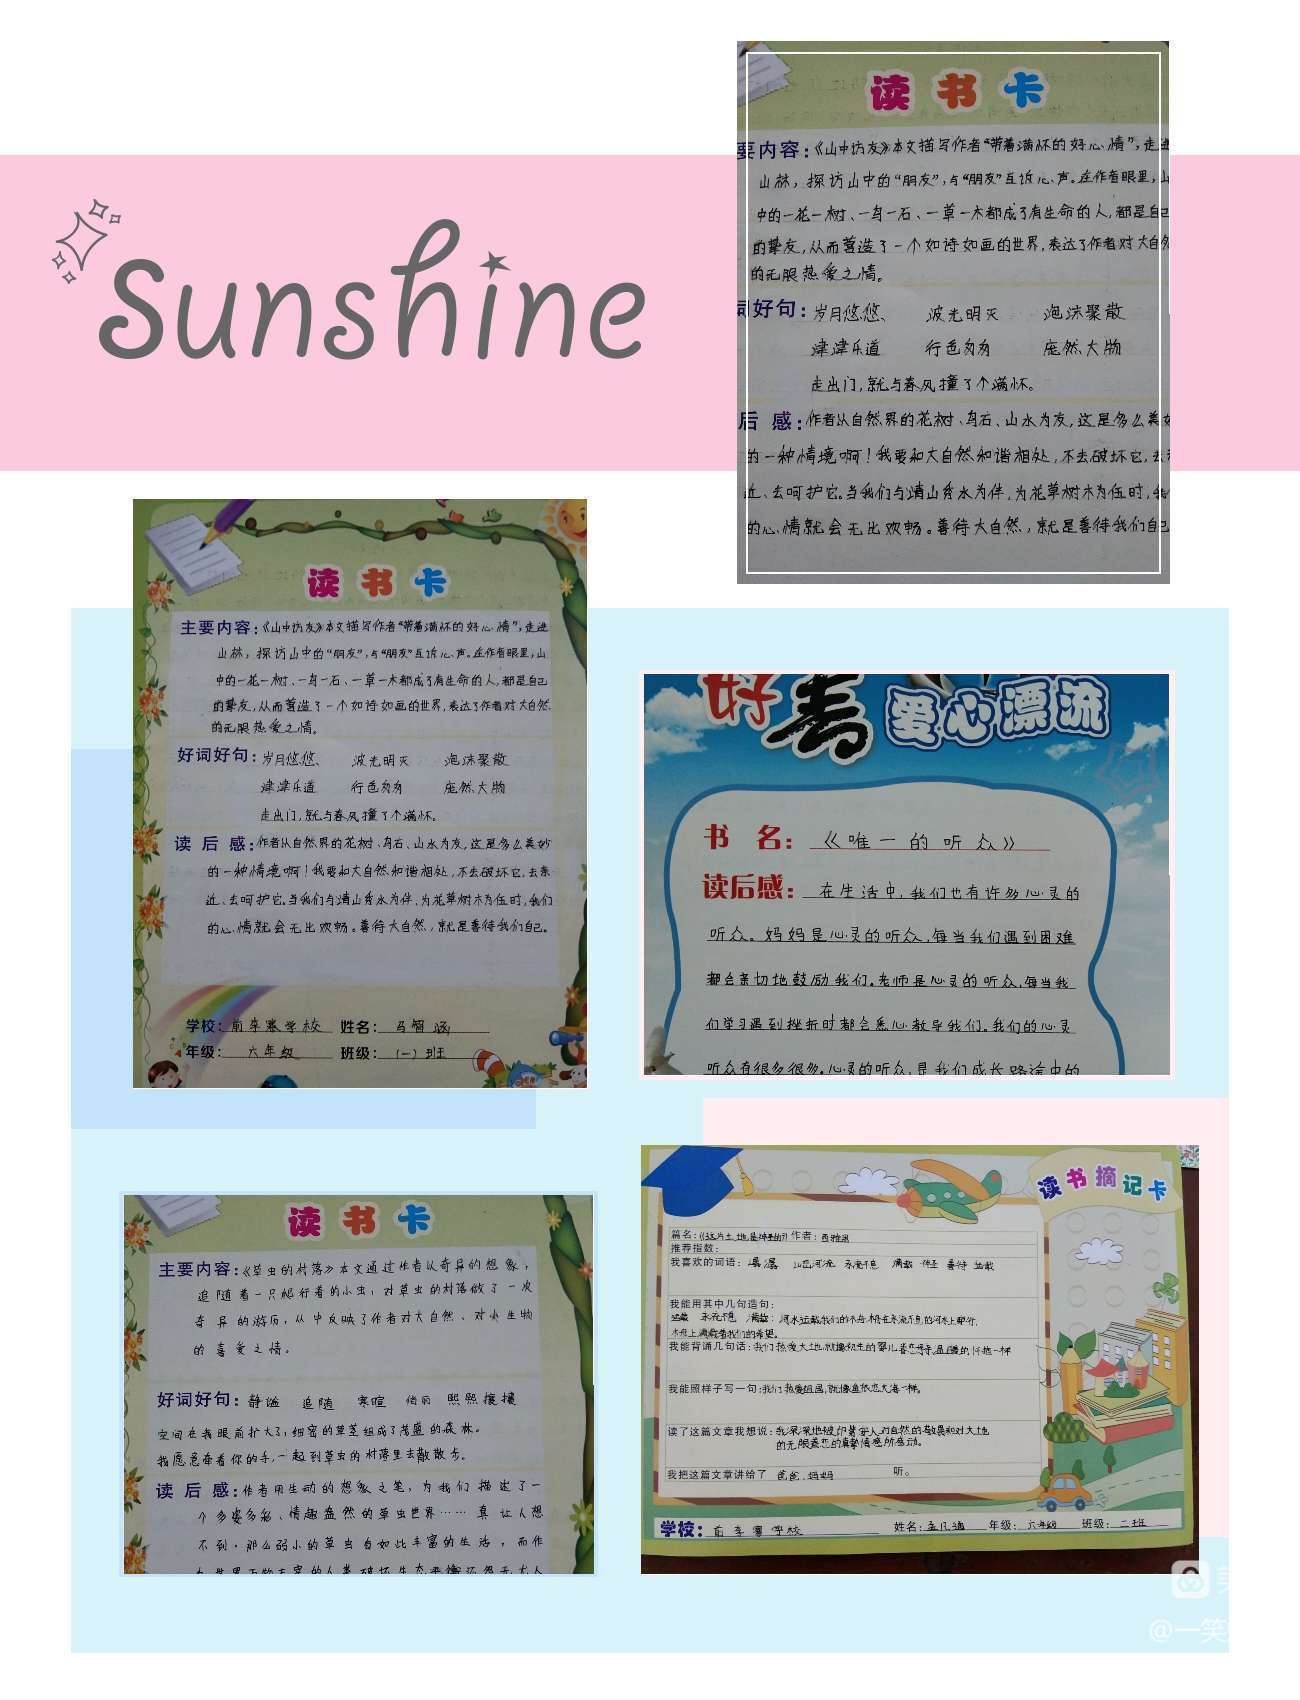 Sunshine
读书卡
要内容:《山中访友》本文描写作者“带着满怀的好心情”,走进
山林,探访山中的“朋友”,与“朋友”互诉心声。在作者眼里,山
中的一花一树、一鸟一石、一草一木都成了有生命的人,都是自己
的挚友,从而营造了一个如诗如画的世界,表达了作者对大自然
的无限热爱之情。
词好句:岁月悠悠、 波光明灭 泡沫聚散
津津乐道 行色匆匆 庞然大物
走出门,就与春风撞了个满怀。
后感:作者以自然界的花树、鸟石、山水为友,这是多么美妙
的一种情境啊!我要和大自然和谐相处,不去破坏它,去亲
近、去呵护它。当我们与清山秀水为伴,为花草树木为伍时,我们
的心情就会无比欢畅。善待大自然,就是善待我们自己
读书卡
主要内容:《山中访友》本文描写作者“带着满怀的好心情”,走进
山林,探访山中的“朋友”,与“朋友”互诉心声。在作者眼里,山
中的一花一树、一鸟一石、一草一木都成了有生命的人,都是自己
的挚友,从而营造了一个如诗如画的世界,表达了作者对大自然
的无限热爱之情。
好词好句:岁月悠悠、 波光明灭 泡沫聚散
津津乐道 行色匆匆 庞然大物
走出门,就与春风撞了个满怀。
读后感:作者从自然界的花树、鸟石、山水为友,这是多么美妙
的一种情境啊!我要和大自然和谐相处,不去破坏它,去亲
近、去呵护它。当我们与清山秀水为伴,为花草树木为伍时,我们
的心情就会无比欢畅。善待大自然,就是善待我们自己。
学校:前李寨学校 姓名:马智涵
年级:六年级 班级:(一)班
好书 爱心漂流
书名:《唯一的听众》
读后感:在生活中,我们也有许多心灵的
听众。妈妈是心灵的听众,每当我们遇到困难
都会亲切地鼓励我们。老师是心灵的听众,每当我
们学习遇到挫折时都会悉心教导我们。我们的心灵
听众有很多很多。心灵的听众,是我们成长路途中的
读书卡
主要内容:《草虫的村落》本文通过作者以奇异的想象,
追随着一只爬行着的小虫,对草虫的村落做了一次
奇异的游历,从中反映了作者对大自然、对小生物
的喜爱之情。
好词好句:静谧 追随 寒暄 俏丽 熙熙攘攘
空间在我眼前扩大了,细密的草茎组成了茂盛的森林。
我愿意牵着你的手,一起到草虫的村落里去散散步。
读后感:作者用生动的想象之笔,为我们描述了一
个多姿多彩、情趣盎然的草虫世界……真让人想
不到,那么弱小的草虫自如此丰富的生活,而作
读书摘记卡
篇名:《这片土地是神圣的》作者:西雅图
推荐指数:
我喜欢的词语:潺潺 山峦河流 永流不息 满载 善待 运载
我能用其中几句造句:
运载 永流不息 满载:河水运载我们的木舟,木舟在永流不息的河水上耶行,
木舟上满载着我们的希望。
我能背诵几句话:我们热爱大地,就像初生的婴儿眷恋母亲温暖的怀抱一样
我能照样子写一句:我们热爱祖国,就像鱼依恋大海一样。
读了这篇文章我想说:我深深地被印第安人对自然的敬畏和对大地
的无限眷恋的真挚情感所感动。
我把这篇文章讲给了 爸爸、妈妈 听。
学校:前李寨学校 姓名: 年级:六年级 班级:二班
@一笑